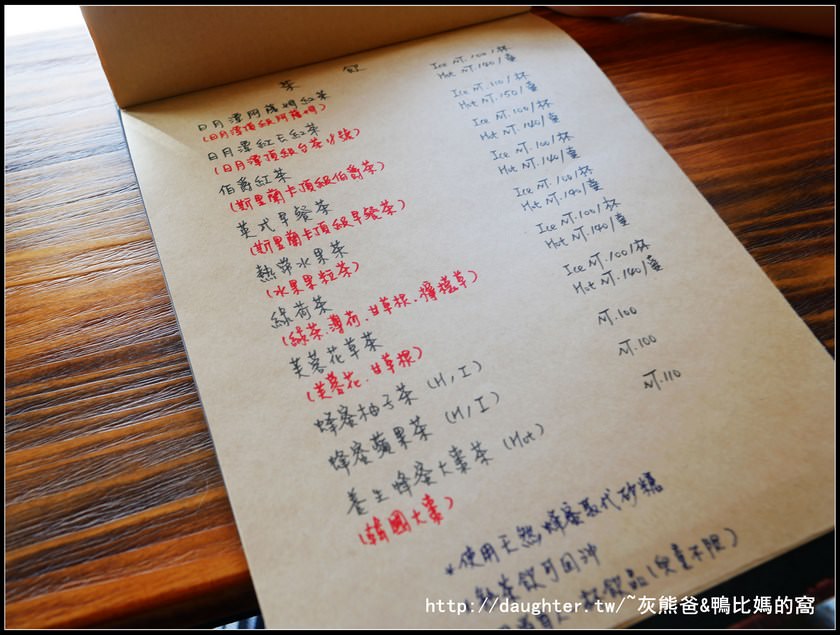 茶飲
日月潭阿薩姆紅茶 Ice NT.100/杯
(日月潭頂級阿薩姆) Hot NT.140/壺
日月潭紅玉紅茶 Ice NT.110/杯
(日月潭頂級台茶18號) Hot NT.150/壺
伯爵紅茶 Ice NT.100/杯
(斯里蘭卡頂級伯爵茶) Hot NT.140/壺
英式早餐茶 Ice NT.100/杯
(斯里蘭卡頂級早餐茶) Hot NT.140/壺
熱帶水果茶 Ice NT.100/杯
(水果果粒茶) Hot NT.140/壺
綠荷茶 Ice NT.100/杯
(綠茶.薄荷.甘草根.檸檬草) Hot NT.140/壺
芙蓉花草茶 Ice NT.100/杯
(芙蓉花.甘草根) Hot NT.140/壺
蜂蜜柚子茶 (H,I) NT.100
蜂蜜蘋果茶 (H,I) NT.100
養生蜂蜜大棗茶 (Hot) NT.110
(韓國大棗)
*使用天然蜂蜜取代砂糖
飲可回沖
飲品(兒童不限)
http://daughter.tw/~灰熊爸&鴨比媽的窩